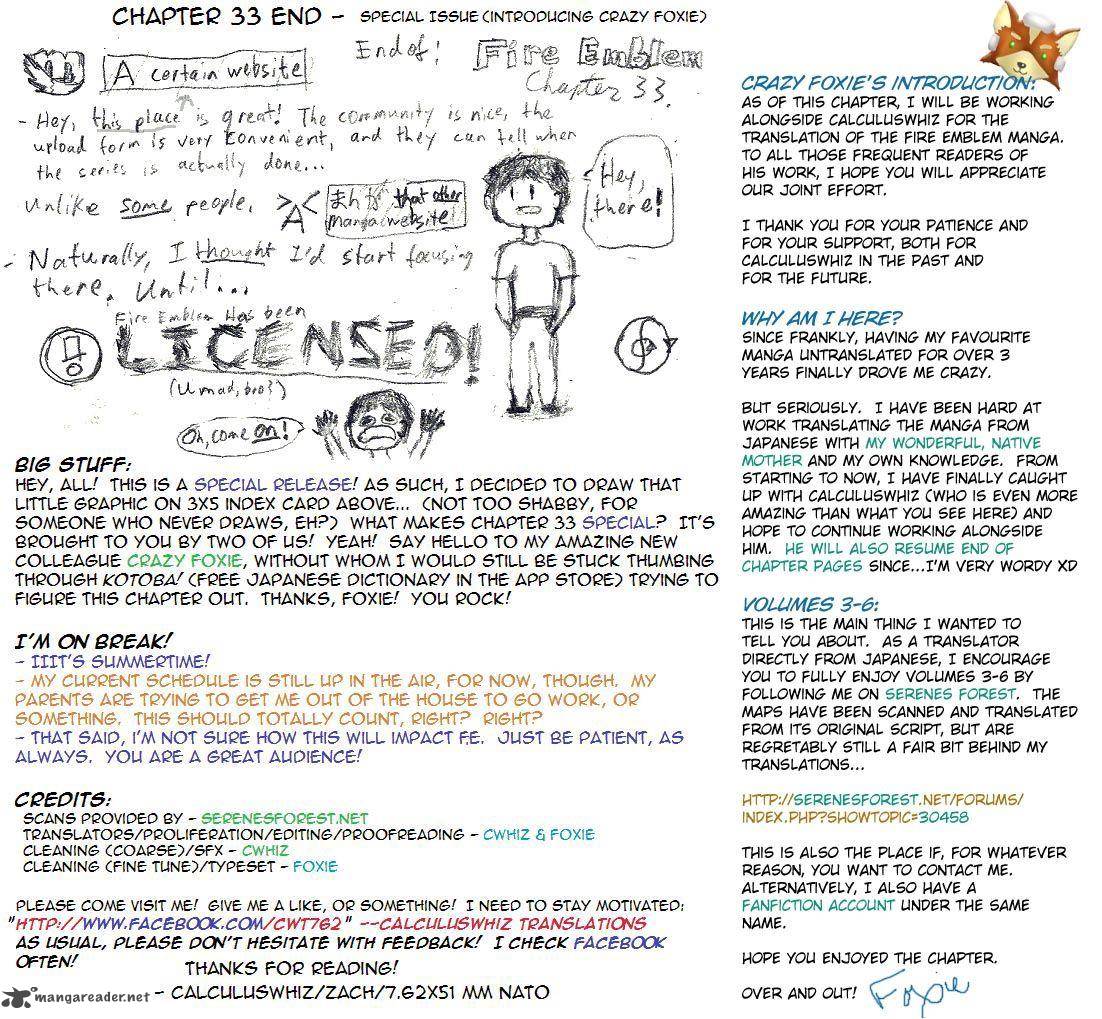 CHAPTER 33 END - SPECIAL ISSUE (INTRODUCING CRAZY FOXIE)
A certain website
End of! Fire Emblem
Chapter 33.
- Hey, this place is great! The community is nice, the
upload form is very convenient, and they can tell when
the series is actually done...
Unlike some people. >A<
まんが that other
manga website!
Hey,
there!
- Naturally, I thought I'd start focusing
there. Until...
Fire Emblem Has been
LICENSED!
(U mad, bro?)
Oh, come on!
BIG STUFF:
HEY, ALL! THIS IS A SPECIAL RELEASE! AS SUCH, I DECIDED TO DRAW THAT
LITTLE GRAPHIC ON 3X5 INDEX CARD ABOVE... (NOT TOO SHABBY, FOR
SOMEONE WHO NEVER DRAWS, EH?) WHAT MAKES CHAPTER 33 SPECIAL? IT'S
BROUGHT TO YOU BY TWO OF US! YEAH! SAY HELLO TO MY AMAZING NEW
COLLEAGUE CRAZY FOXIE, WITHOUT WHOM I WOULD STILL BE STUCK THUMBING
THROUGH KOTOBA! (FREE JAPANESE DICTIONARY IN THE APP STORE) TRYING TO
FIGURE THIS CHAPTER OUT. THANKS, FOXIE! YOU ROCK!
I'M ON BREAK!
- IIIT'S SUMMERTIME!
- MY CURRENT SCHEDULE IS STILL UP IN THE AIR, FOR NOW, THOUGH. MY
PARENTS ARE TRYING TO GET ME OUT OF THE HOUSE TO GO WORK, OR
SOMETHING. THIS SHOULD TOTALLY COUNT, RIGHT? RIGHT?
- THAT SAID, I'M NOT SURE HOW THIS WILL IMPACT F.E. JUST BE PATIENT, AS
ALWAYS. YOU ARE A GREAT AUDIENCE!
CREDITS:
SCANS PROVIDED BY - SERENESFOREST.NET
TRANSLATORS/PROLIFERATION/EDITING/PROOFREADING - CWHIZ & FOXIE
CLEANING (COARSE)/SFX - CWHIZ
CLEANING (FINE TUNE)/TYPESET - FOXIE
PLEASE COME VISIT ME! GIVE ME A LIKE, OR SOMETHING! I NEED TO STAY MOTIVATED:
"HTTP://WWW.FACEBOOK.COM/CWT762" --CALCULUSWHIZ TRANSLATIONS
AS USUAL, PLEASE DON'T HESITATE WITH FEEDBACK! I CHECK FACEBOOK
OFTEN!
THANKS FOR READING!
- CALCULUSWHIZ/ZACH/7.62X51 MM NATO
mangareader.net
CRAZY FOXIE'S INTRODUCTION:
AS OF THIS CHAPTER, I WILL BE WORKING
ALONGSIDE CALCULUSWHIZ FOR THE
TRANSLATION OF THE FIRE EMBLEM MANGA.
TO ALL THOSE FREQUENT READERS OF
HIS WORK, I HOPE YOU WILL APPRECIATE
OUR JOINT EFFORT.
I THANK YOU FOR YOUR PATIENCE AND
FOR YOUR SUPPORT, BOTH FOR
CALCULUSWHIZ IN THE PAST AND
FOR THE FUTURE.
WHY AM I HERE?
SINCE FRANKLY, HAVING MY FAVOURITE
MANGA UNTRANSLATED FOR OVER 3
YEARS FINALLY DROVE ME CRAZY.
BUT SERIOUSLY. I HAVE BEEN HARD AT
WORK TRANSLATING THE MANGA FROM
JAPANESE WITH MY WONDERFUL, NATIVE
MOTHER AND MY OWN KNOWLEDGE. FROM
STARTING TO NOW, I HAVE FINALLY CAUGHT
UP WITH CALCULUSWHIZ (WHO IS EVEN MORE
AMAZING THAN WHAT YOU SEE HERE) AND
HOPE TO CONTINUE WORKING ALONGSIDE
HIM. HE WILL ALSO RESUME END OF
CHAPTER PAGES SINCE...I'M VERY WORDY XD
VOLUMES 3-6:
THIS IS THE MAIN THING I WANTED TO
TELL YOU ABOUT. AS A TRANSLATOR
DIRECTLY FROM JAPANESE, I ENCOURAGE
YOU TO FULLY ENJOY VOLUMES 3-6 BY
FOLLOWING ME ON SERENES FOREST. THE
MAPS HAVE BEEN SCANNED AND TRANSLATED
FROM ITS ORIGINAL SCRIPT, BUT ARE
REGRETABLY STILL A FAIR BIT BEHIND MY
TRANSLATIONS...
HTTP://SERENESFOREST.NET/FORUMS/
INDEX.PHP?SHOWTOPIC=30458
THIS IS ALSO THE PLACE IF, FOR WHATEVER
REASON, YOU WANT TO CONTACT ME.
ALTERNATIVELY, I ALSO HAVE A
FANFICTION ACCOUNT UNDER THE SAME
NAME.
HOPE YOU ENJOYED THE CHAPTER.
OVER AND OUT! Foxie